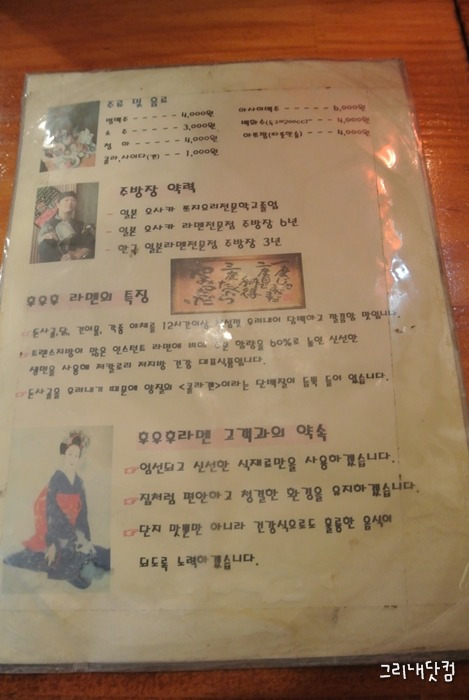 주류 및 음료
병맥주 - - - - - 4,000원
소 주 - - - - - 3,000원
청 하 - - - - - 4,000원
콜라,사이다(캔) - - 1,000원
아사이맥주 - - - - - 6,000원
백화수복 - - 4,000원
- - - - 4,000원
주방장 약력
- 일본 오사카 쯔지요리전문학교졸업
- 일본 오사카 라멘전문점 주방장 6년
- 한국 일본라멘전문점 주방장 3년
후우후 라멘의 특징
돈사골,닭, 건어물, 각종 야채를 12시간이상 우려내어 담백하고 깔끔한 맛입니다.
트랜스지방이 많은 인스턴트 라면에 비해 함량을 90%로 높인 신선한
생면을 사용해 저칼로리 저지방 건강 대표식품입니다.
돈사골을 우려내기 때문에 양질의 <콜라겐>이라는 단백질이 듬뿍 들어 있습니다.
후우후라멘 고객과의 약속
엄선되고 신선한 식재료만을 사용하겠습니다.
집처럼 편안하고 청결한 환경을 유지하겠습니다.
단지 맛뿐만 아니라 건강식으로도 훌륭한 음식이
되도록 노력하겠습니다.
그리내닷컴